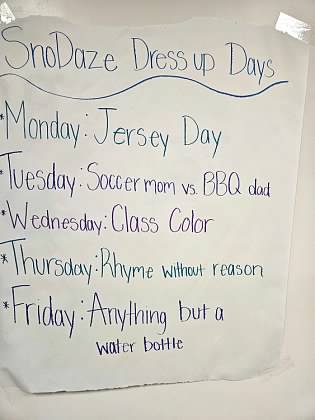 SnoDaze Dress up Days
*Monday: Jersey Day
*Tuesday: Soccer mom vs. BBQ dad
*Wednesday: Class Color
*Thursday: Rhyme without reason
*Friday: Anything but a
water bottle